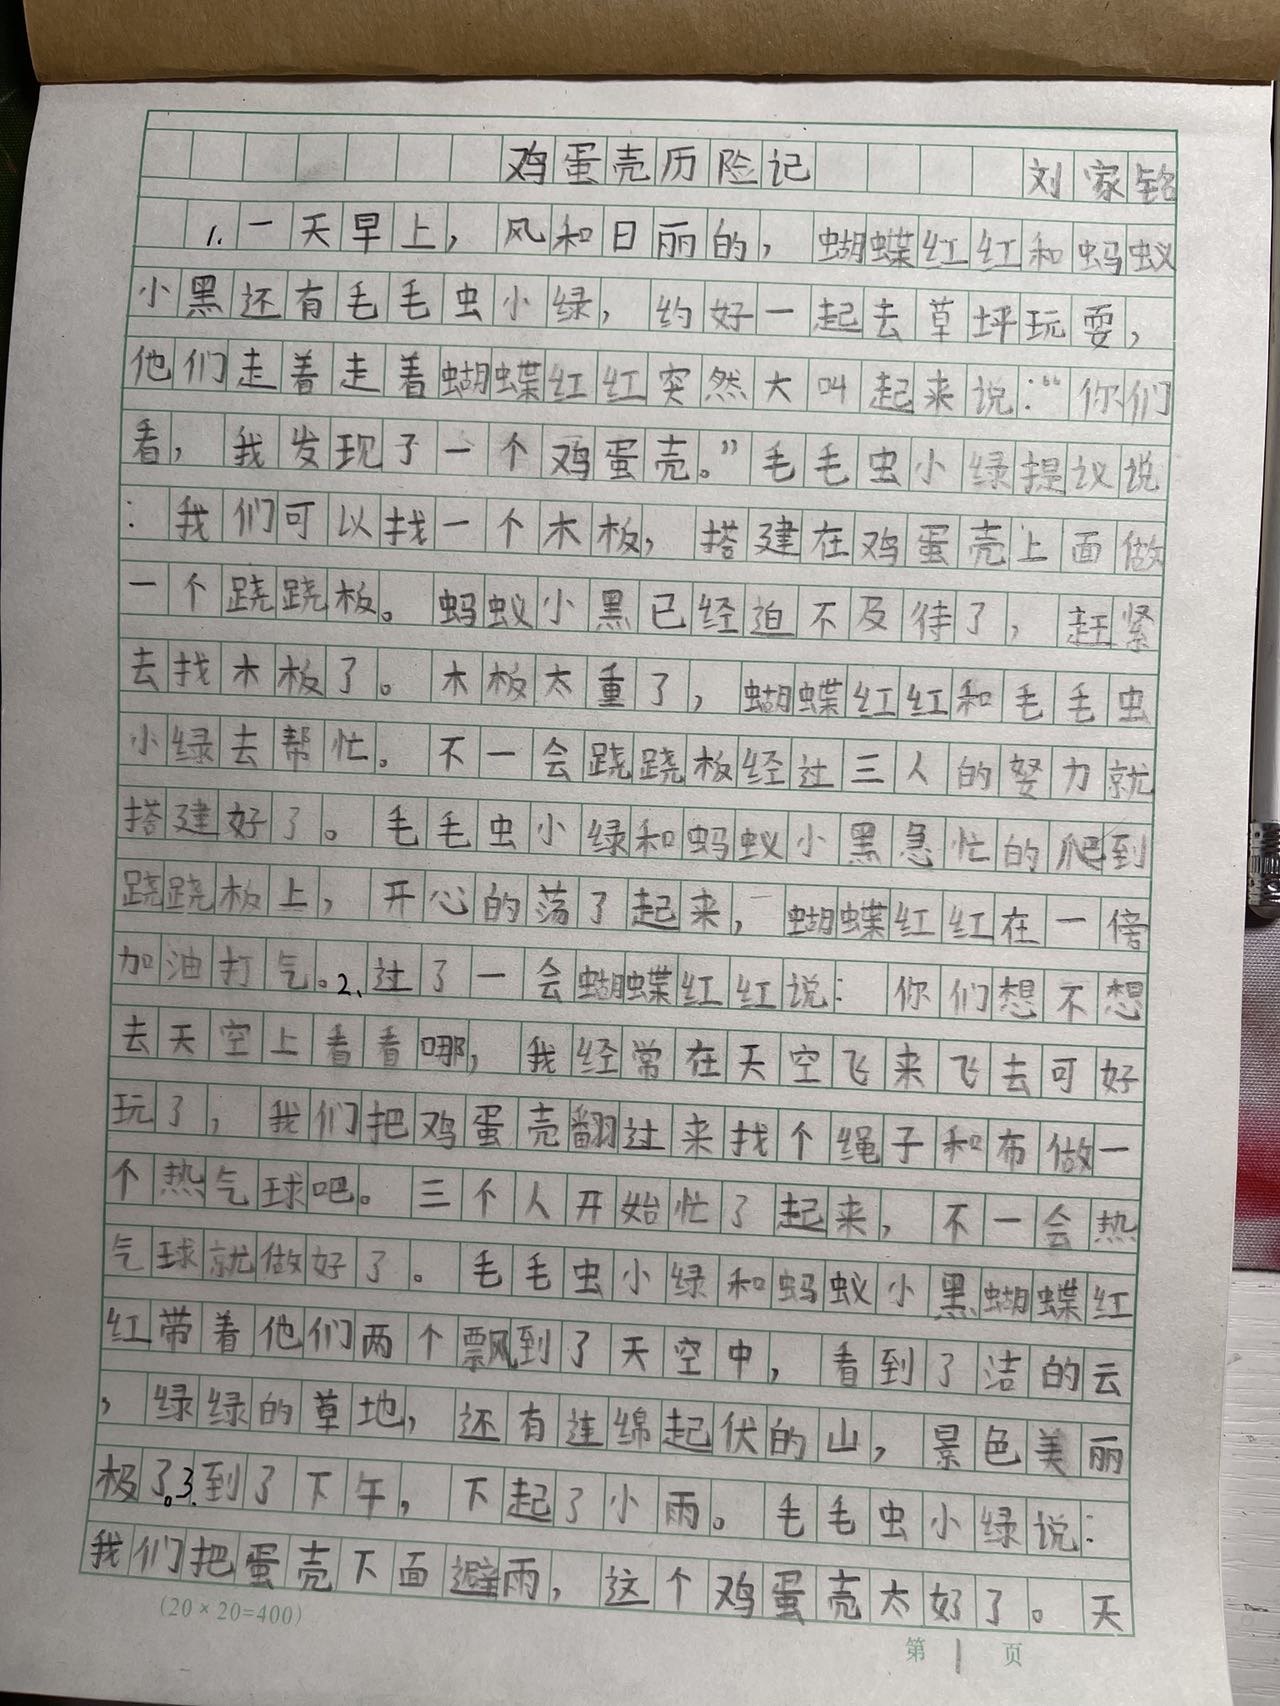 鸡蛋壳历险记 刘家铭
1.一天早上，风和日丽的，蝴蝶红红和蚂蚁
小黑还有毛毛虫小绿，约好一起去草坪玩耍，
他们走着走着蝴蝶红红突然大叫起来说：“你们
看，我发现了一个鸡蛋壳。”毛毛虫小绿提议说
：我们可以找一个木板，搭建在鸡蛋壳上面做
一个跷跷板。蚂蚁小黑已经迫不及待了，赶紧
去找木板了。木板太重了，蝴蝶红红和毛毛虫
小绿去帮忙。不一会跷跷板经过三人的努力就
搭建好了。毛毛虫小绿和蚂蚁小黑急忙的爬到
跷跷板上，开心的荡了起来，蝴蝶红红在一傍
加油打气。2、过了一会蝴蝶红红说：你们想不想
去天空上看看哪，我经常在天空飞来飞去可好
玩了，我们把鸡蛋壳翻过来找个绳子和布做一
个热气球吧。三个人开始忙了起来，不一会热
气球就做好了。毛毛虫小绿和蚂蚁小黑蝴蝶红
红带着他们两个飘到了天空中，看到了洁的云
，绿绿的草地，还有连绵起伏的山，景色美丽
极了。3.到了下午，下起了小雨。毛毛虫小绿说：
我们把蛋壳下面避雨，这个鸡蛋壳太好了。天
(20×20=400)
第1页